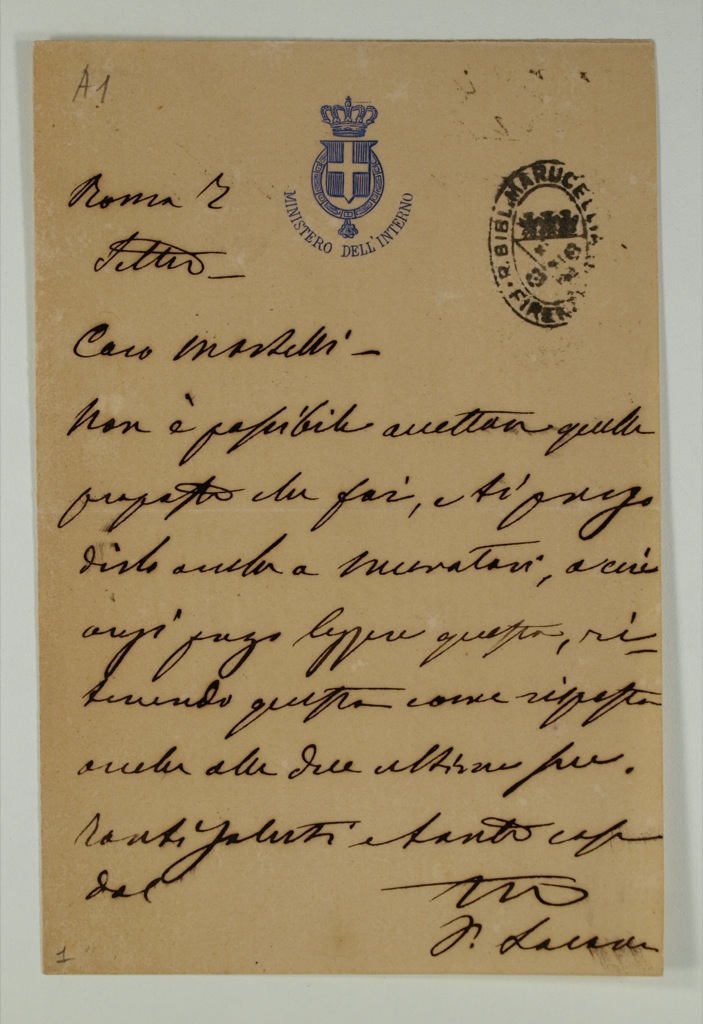 A1
MINISTERO DELL'INTERNO
R. BIBL. MARUCELLIANA
FIRENZE
Roma 2
Caro Martelli -
Non è possibile accettar quelle
proposte che fai, e ti prego
dirlo anche a Muratori, a cui
anzi prego leggere questa, ri-
tenendo questa come risposta
anche alle due ultime sue.
Tanti saluti e tante cose
dal
Tuo
1